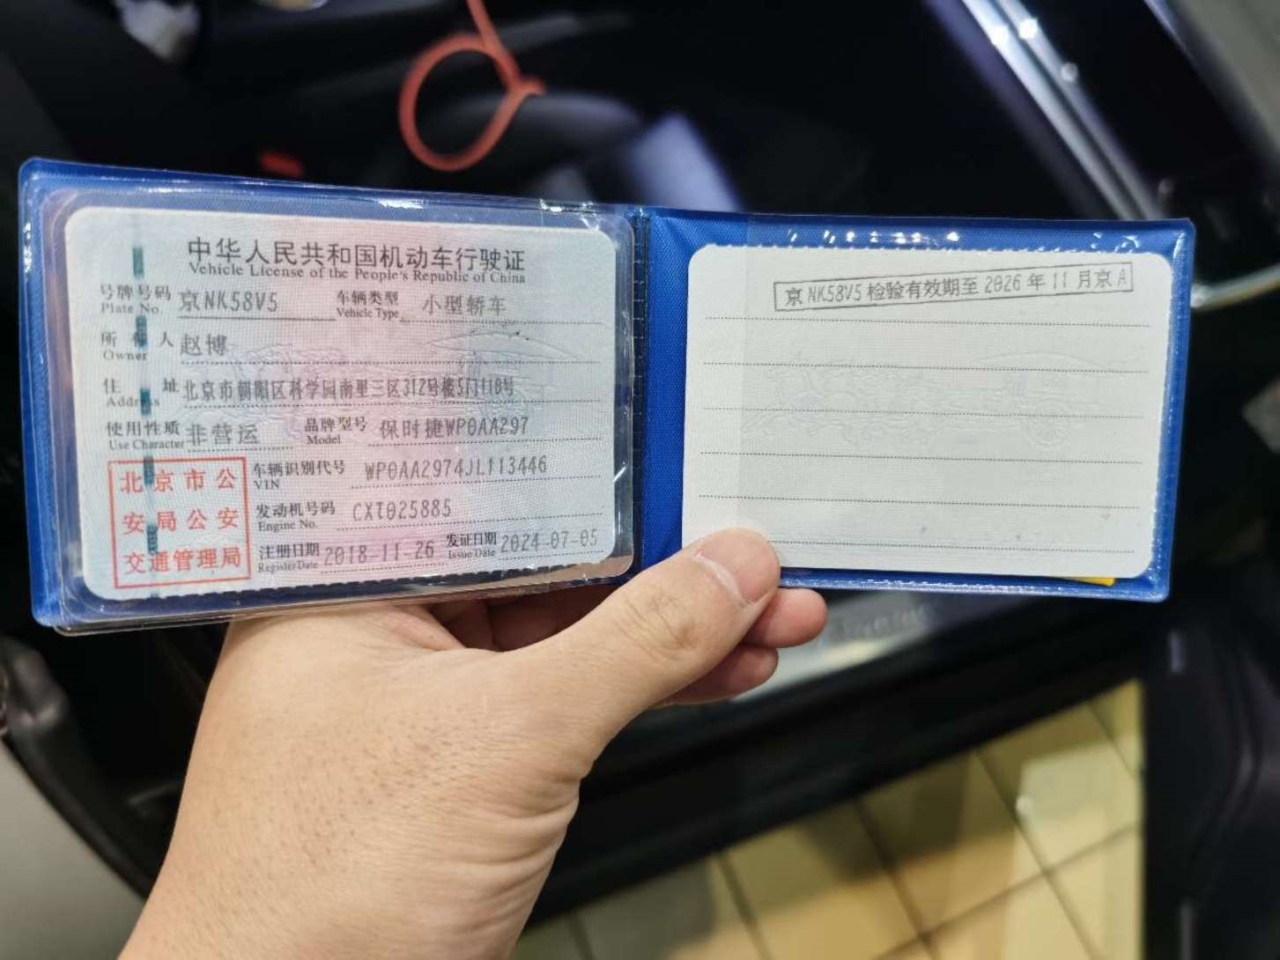 中华人民共和国机动车行驶证
Vehicle License of the People's Republic of China
号牌号码 京NK58V5 车辆类型 小型轿车
Plate No. Vehicle Type
所有人 赵博
Owner
住址 北京市朝阳区科学园南里三区312号楼5门118号
Address
使用性质 非营运 品牌型号 保时捷WP0AA297
Use Character Model
北京市公
安局公安
交通管理局
车辆识别代号 WP0AA2974JL113446
VIN
发动机号码 CXT025885
Engine No.
注册日期 2018-11-26 发证日期 2024-07-05
Register Date Issue Date
京NK58V5 检验有效期至 2026 年 11 月京A